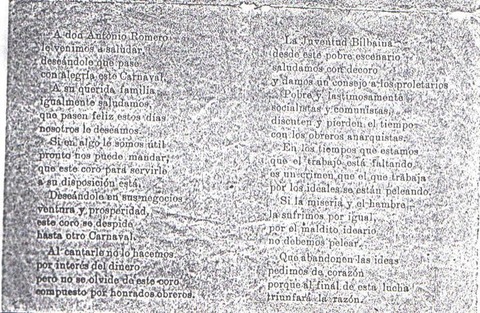 A don Antonio Romero
le venimos a saludar
deseándole que pase
con alegría este Carnaval.
A su querida familia
igualmente saludamos,
que pasen feliz estos días
nosotros le deseamos.
Si en algo le somos útil
pronto nos puede mandar,
que este coro para servirle
a su disposición está.
Deseándole en sus negocios
ventura y prosperidad,
este coro se despide
hasta otro Carnaval.
Al cantarle no lo hacemos
por interés del dinero
pero no se olvide de este coro
compuesto por honrados obreros.
La Juventud Bilbaina
desde este pobre escenario
saludamos con decoro
y damos un consejo a los proletarios
Pobre y lastimosamente
socialistas y comunistas
discuten y pierden el tiempo
con los obreros anarquistas.
En los tiempos que estamos
que el trabajo está faltando
es un crimen que el que trabaja
por los ideales se están peleando.
Si la miseria y el hambre
la sufrimos por igual,
por el maldito ideario
no debemos pelear.
Que abandonen las ideas
pedimos de corazón
porque al final de esta lucha
triunfará la razón.